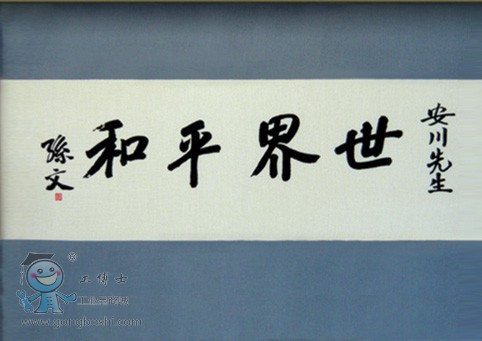 安川先生
世界平和
孫文
工博士
www.gongboshi.com